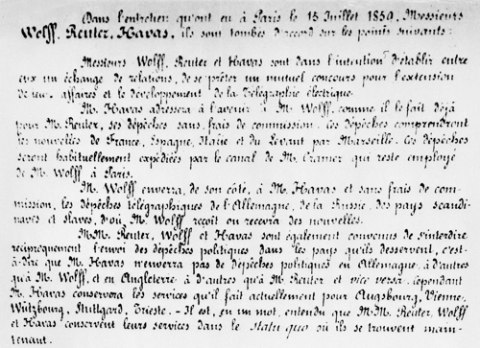 Dans l'entretien qu'ont eu à Paris le 15 Juillet 1859, Messieurs
Wolff, Reuter, Havas, ils sont tombés d'accord sur les points suivants:
Messieurs Wolff, Reuter et Havas sont dans l'intention d'établir entre
eux un échange de relations, de se prêter un mutuel concours pour l'extension
de leurs affaires et le développement de la Télégraphie électrique.
M. Havas adressera à l'avenir à Mr Wolff, comme il le fait déjà
pour M. Reuter, ses dépêches sans frais de commission. Ces dépêches comprendront
les nouvelles de France, Espagne, Italie et du Levant par Marseille. Ces dépêches
seront habituellement expédiées par le canal de M. Cramer qui reste employé
de M. Wolff à Paris.
M. Wolff enverra, de son côté, à M. Havas et sans frais de com-
mission, les dépêches télégraphiques de l'Allemagne, de la Russie, des pays scandi-
naves et slaves, d'où M. Wolff reçoit ou recevra des nouvelles.
MM. Reuter, Wolff et Havas sont également convenus de s'interdire
réciproquement l'envoi des dépêches politiques dans les pays qu'ils desservent, c'est-
à-dire que M. Havas n'enverra pas de dépêches politiques en Allemagne à d'autres
qu'à M. Wolff, et en Angleterre à d'autres qu'à M. Reuter et vice versa. Cependant
M. Havas conservera les services qu'il fait actuellement pour Augsbourg, Vienne,
Wützbourg, Stuttgard, Trieste. - Il est, en un mot, entendu que M.M. Reuter, Wolff
et Havas conservent leurs services dans le statu quo où ils se trouvent main-
tenant.